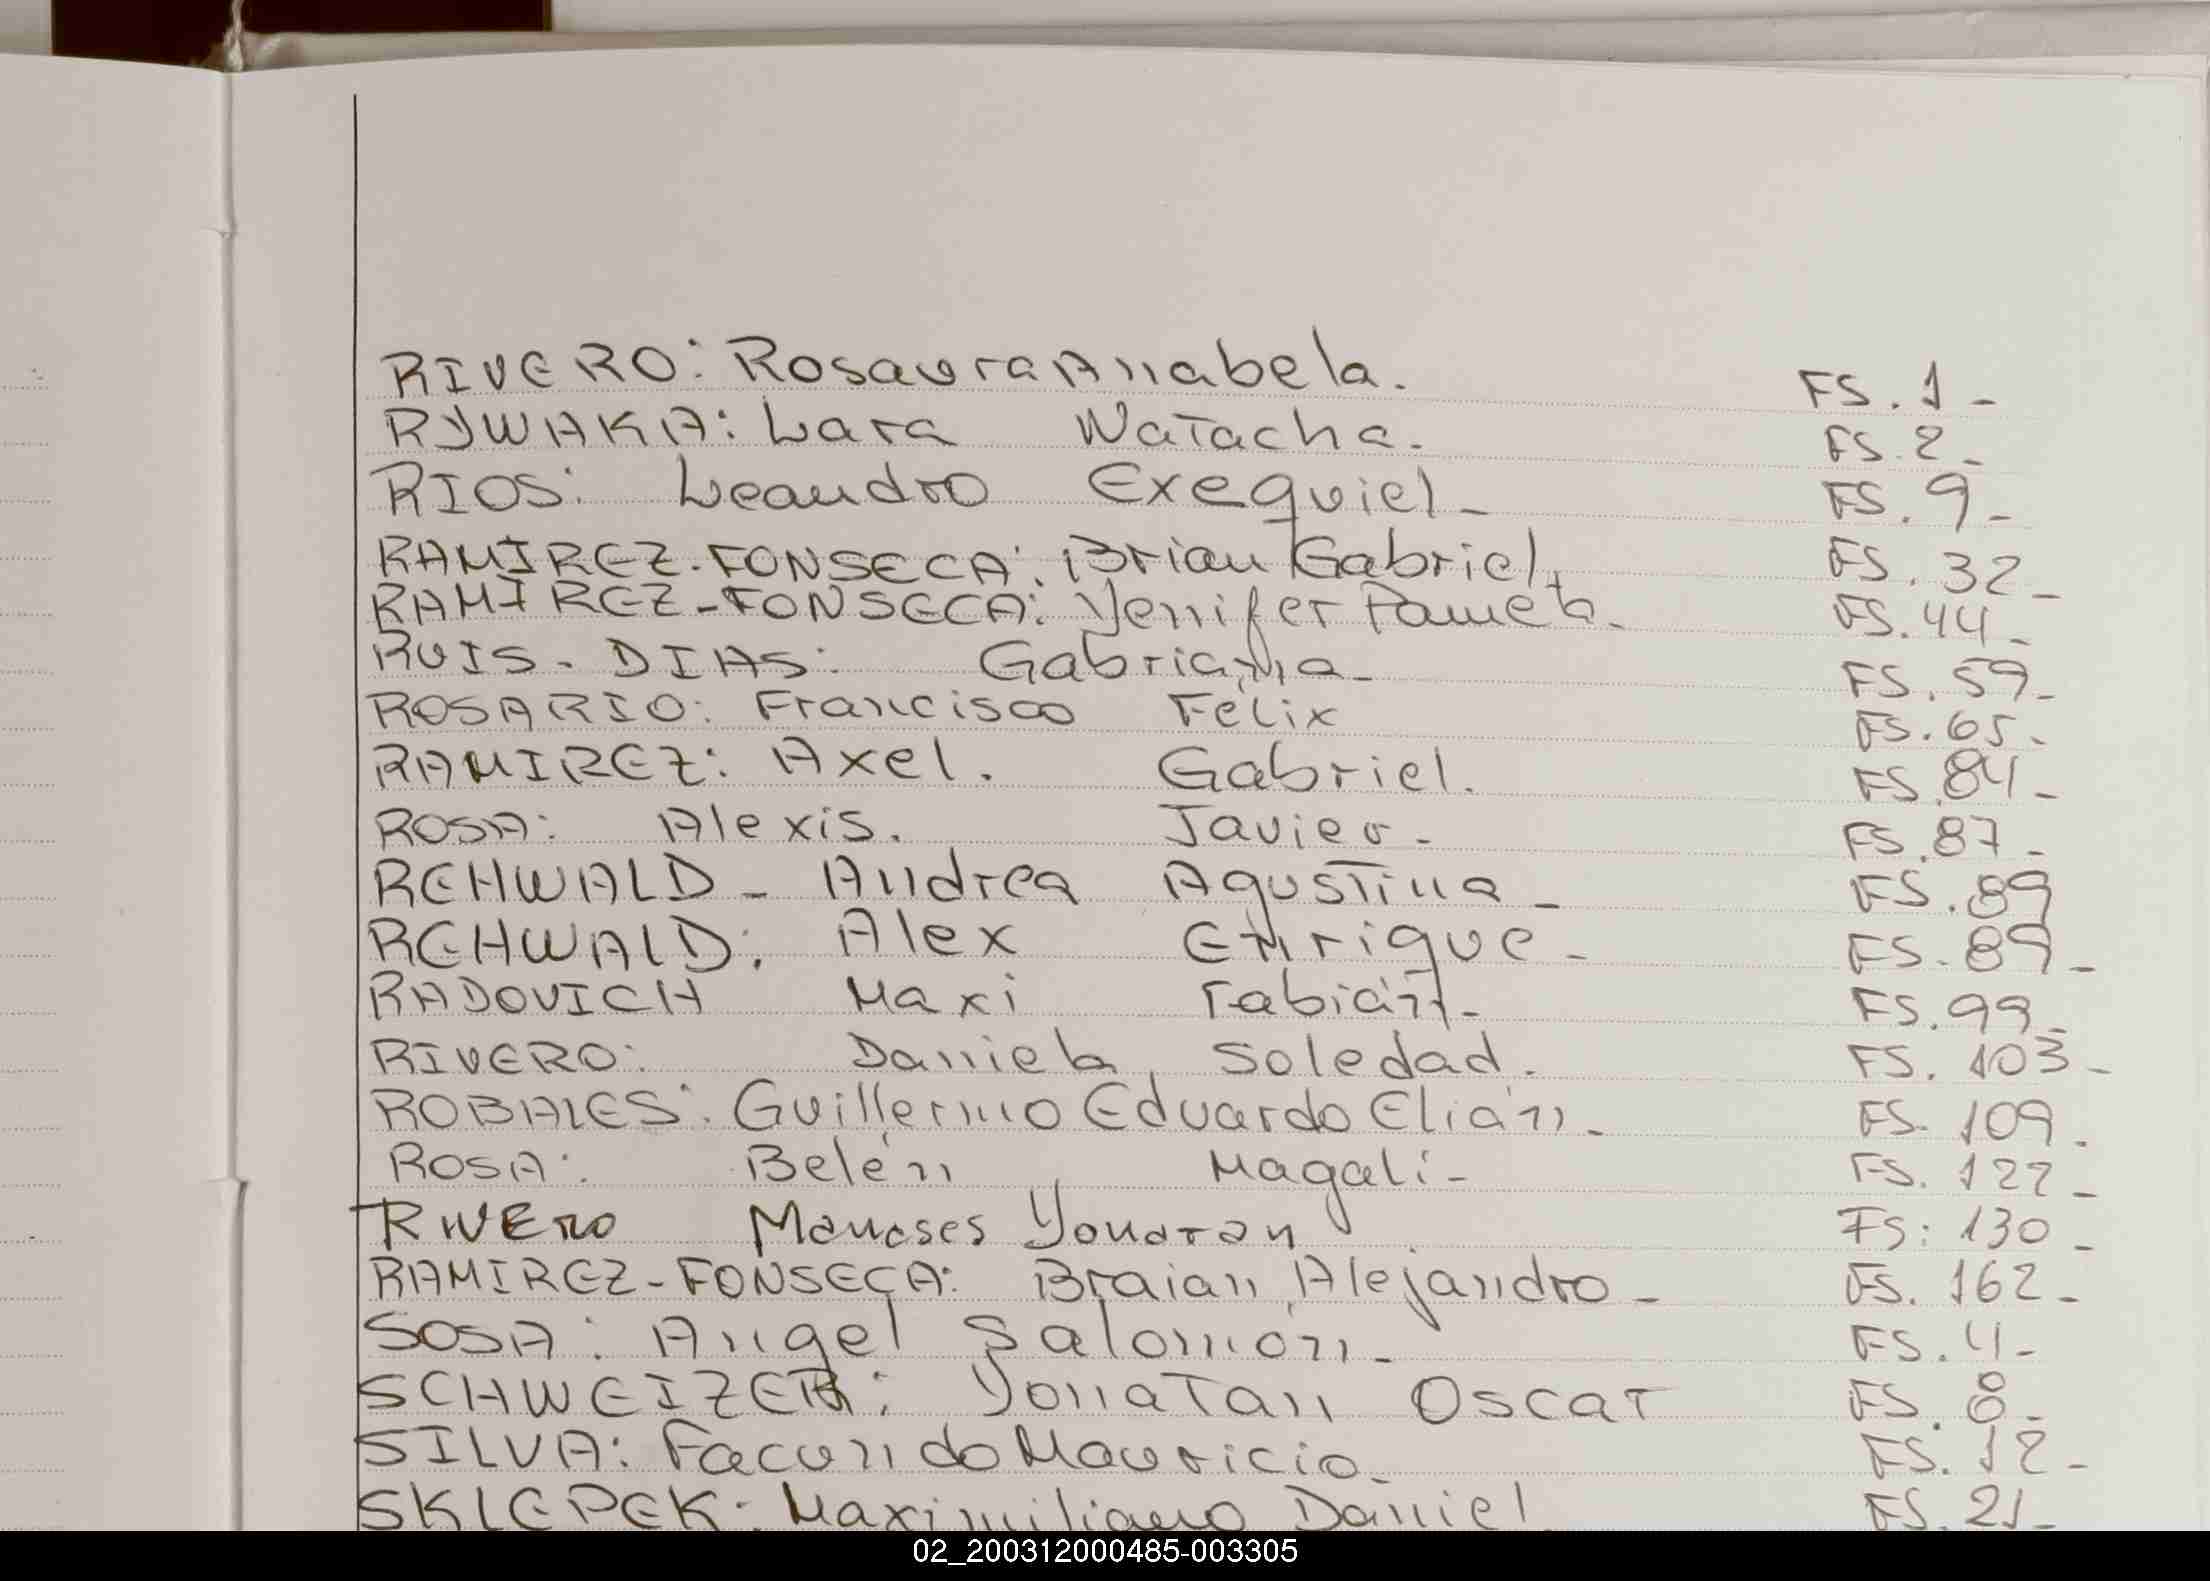 RIVERO: Rosaura Anabela. FS. 1-
RYWAKA: Lara Natacha. FS. 2-
RIOS: Leandro Exequiel- FS. 9-
RAMIREZ-FONSECA: Brian Gabriel. FS. 32-
RAMIREZ-FONSECA: Yenifer Pamela- FS. 44-
RUIS-DIAS: Gabriana- FS. 59-
ROSARIO: Francisco Felix FS. 65-
RAMIREZ: Axel. Gabriel. FS. 84-
ROSA: Alexis. Javier- FS. 87-
REHWALD- Andrea Agustina- FS. 89
REHWALD: Alex Enrique- FS. 89-
RADOVICH Maxi Fabián- FS. 99-
RIVERO: Daniela Soledad. FS. 103-
ROBALES: Guillermo Eduardo Elián- FS. 109-
ROSA: Belén Magalí- FS. 122-
RIVERO Manases Yonatan FS: 130-
RAMIREZ-FONSECA: Braian Alejandro- FS. 162-
SOSA: Angel Salomón- FS. 4-
SCHWEIZER: Yonatan Oscar FS. 8-
SILVA: Facundo Mauricio- FS. 12-
SKLEPEK: Maximiliano Daniel FS. 21-
02_200312000485-003305